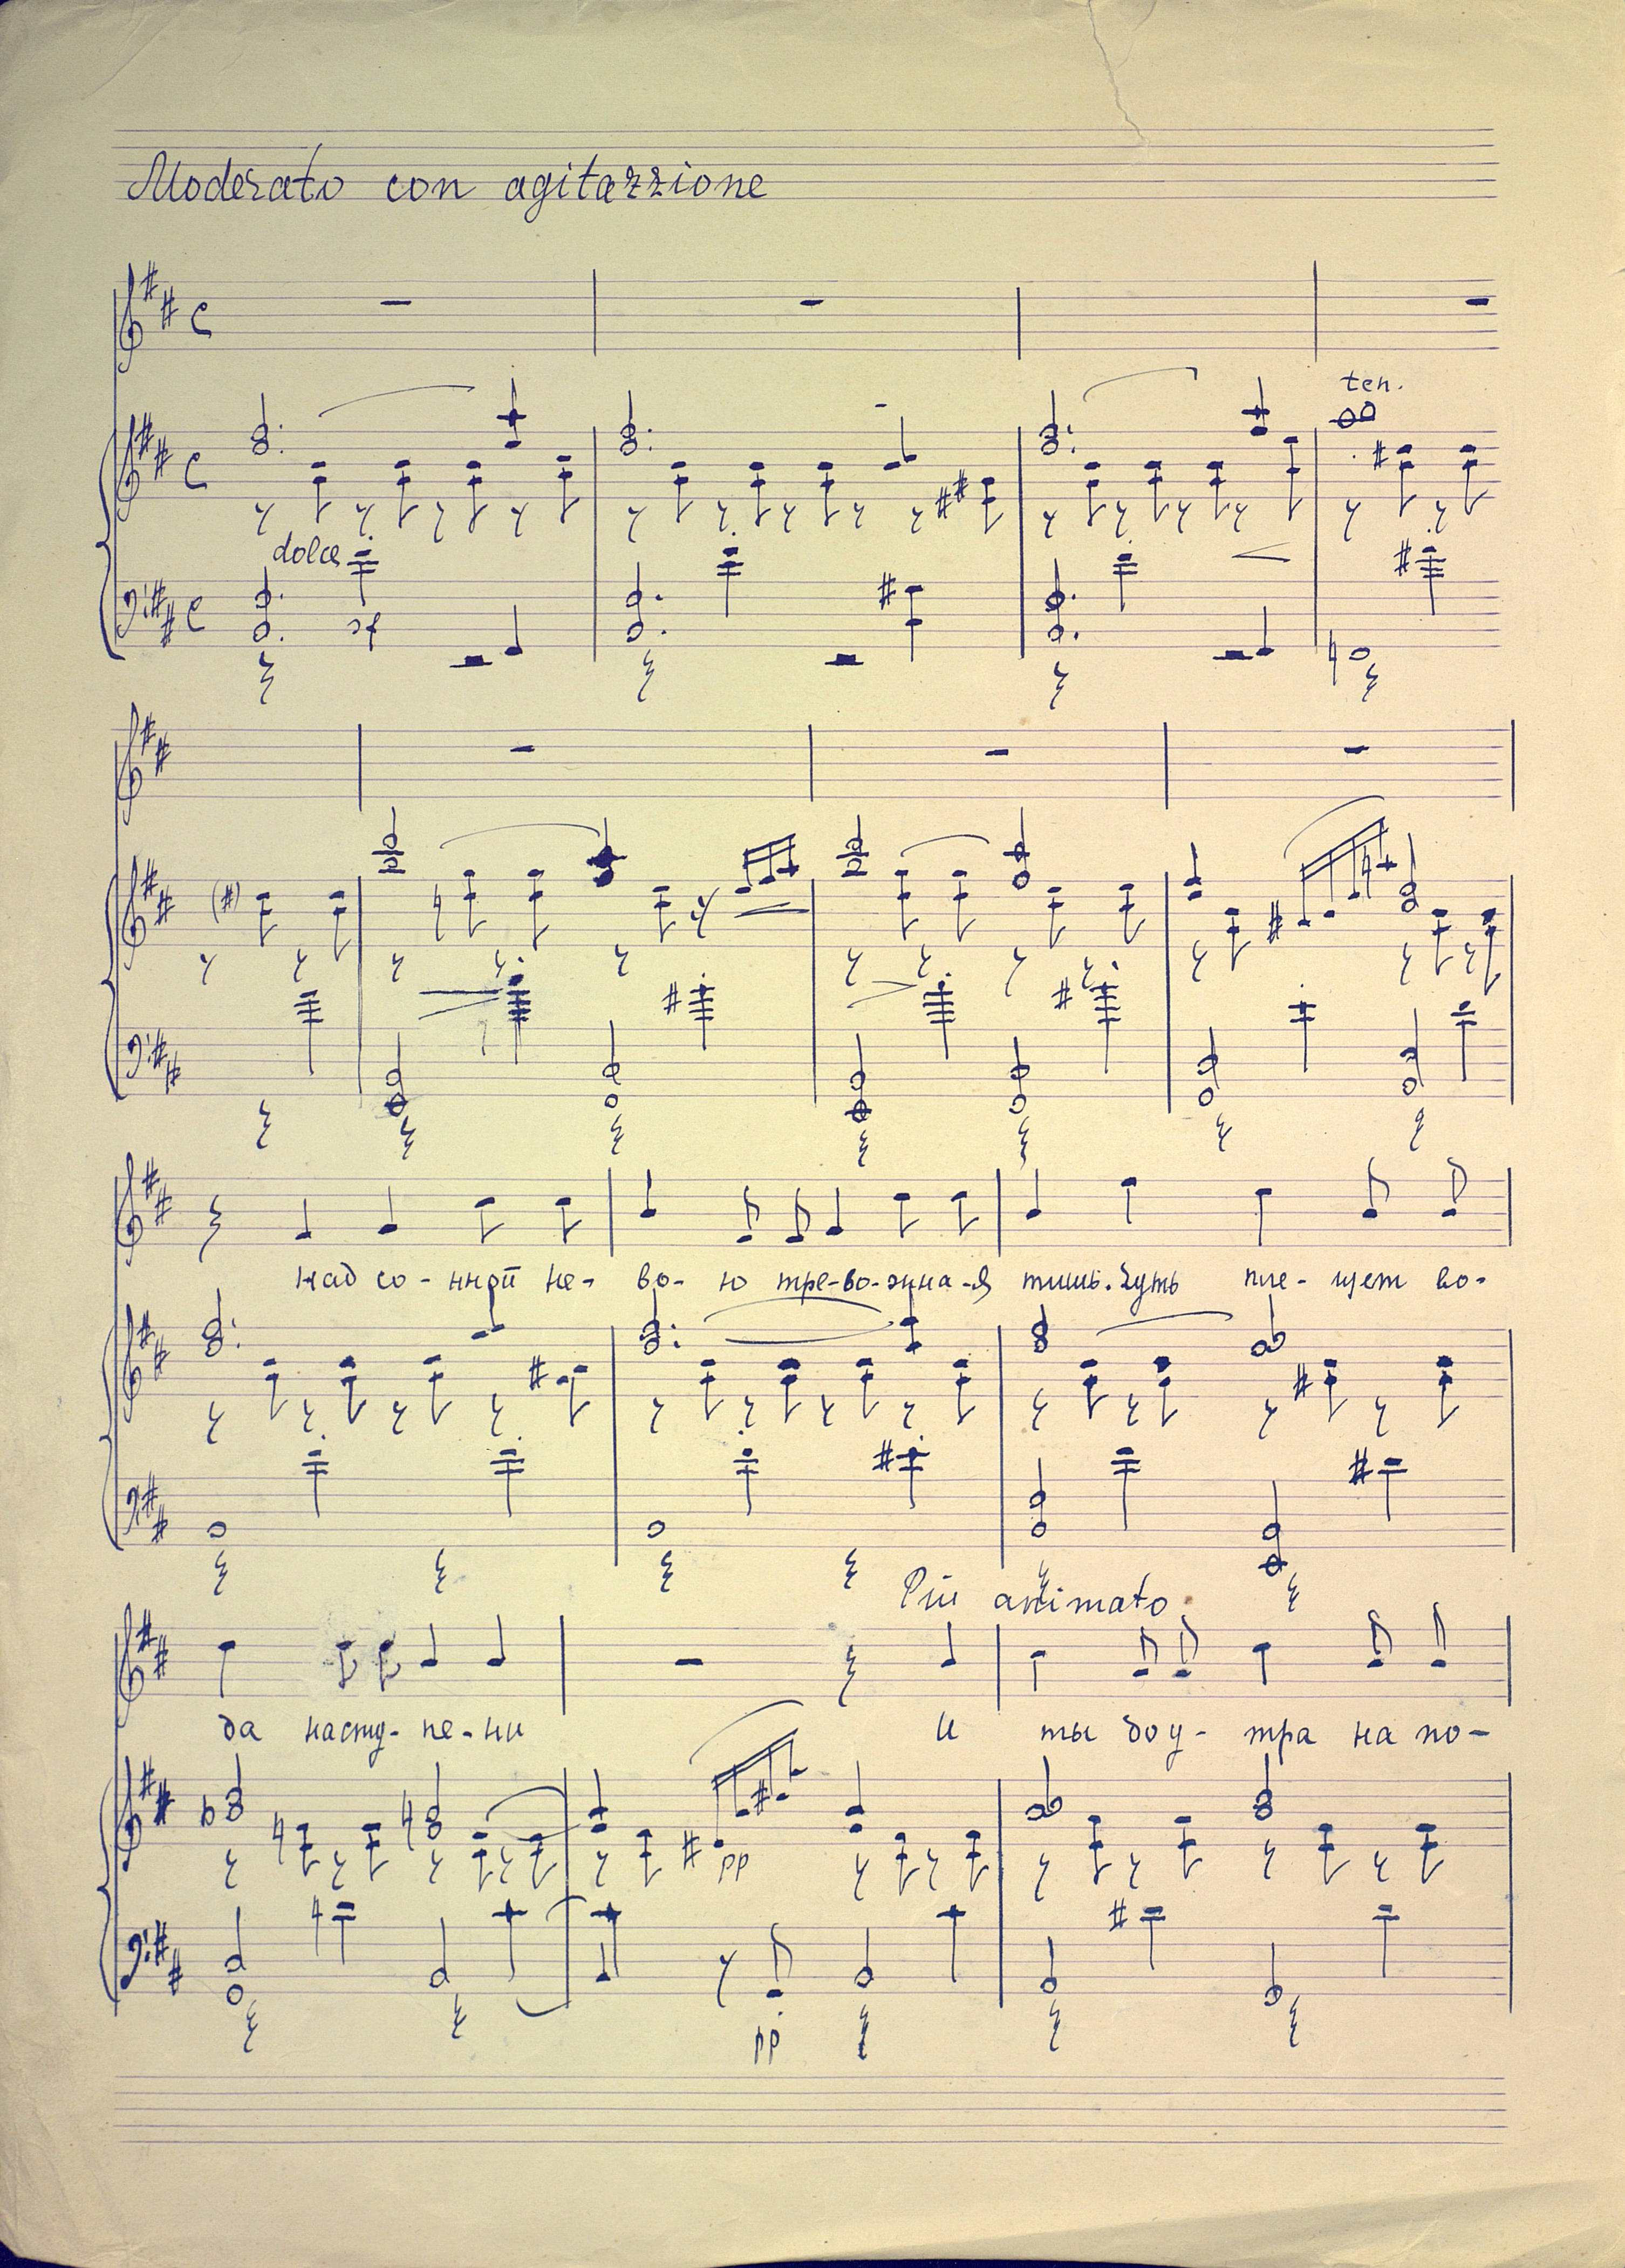 Moderato con agitazzione
ten.
dolce
sf
Над со - нной не - во - ю тре-во-жна-я тишь. Чуть пле - щет во -
Più animato
да насту - пе - ни и ты до у - тра на по -
pp
pp